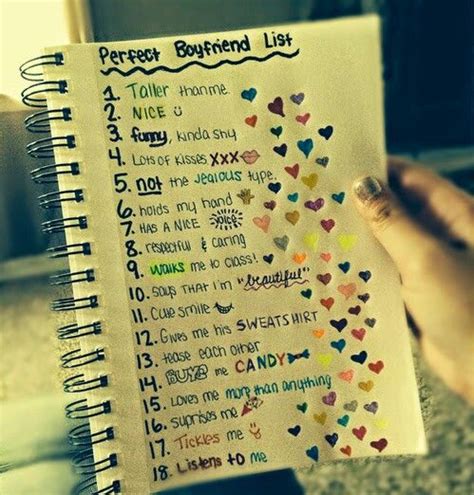 Perfect Boyfriend List
1. Taller than me.
2. NICE
3. funny, kinda shy
4. Lots of kisses XXX
5. not the jealous type.
6. holds my hand
7. HAS A NICE VOICE
8. respectful & caring
9. walks me to class!
10. Says THAT I'm "beautiful"
11. Cute smile
12. Gives me his SWEATSHIRT
13. tease each other
14. BUYS me CANDY
15. Loves me more than anything
16. suprises me
17. Tickles me
18. Listens to me